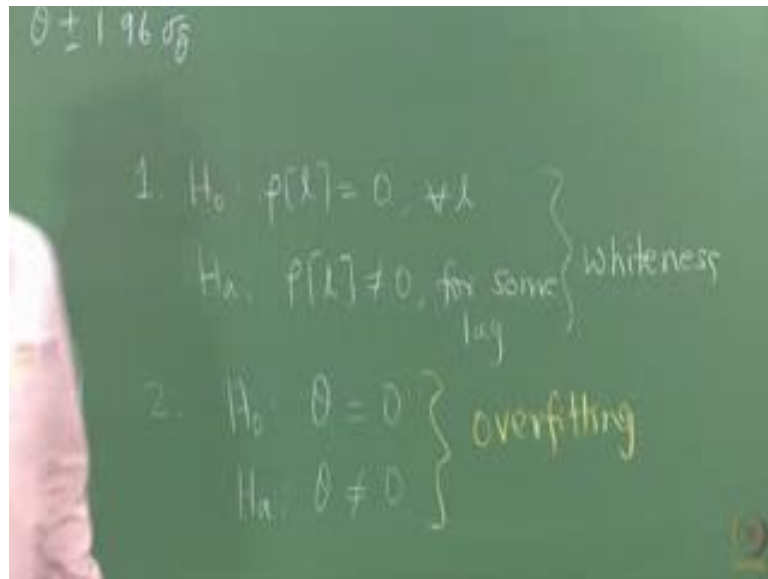 θ ± 1.96 σ_θ̂
1. H₀: ρ[l] = 0, ∀l
Hₐ: ρ[l] ≠ 0, for some lag } whiteness
2. H₀: θ = 0
Hₐ: θ ≠ 0 } overfitting